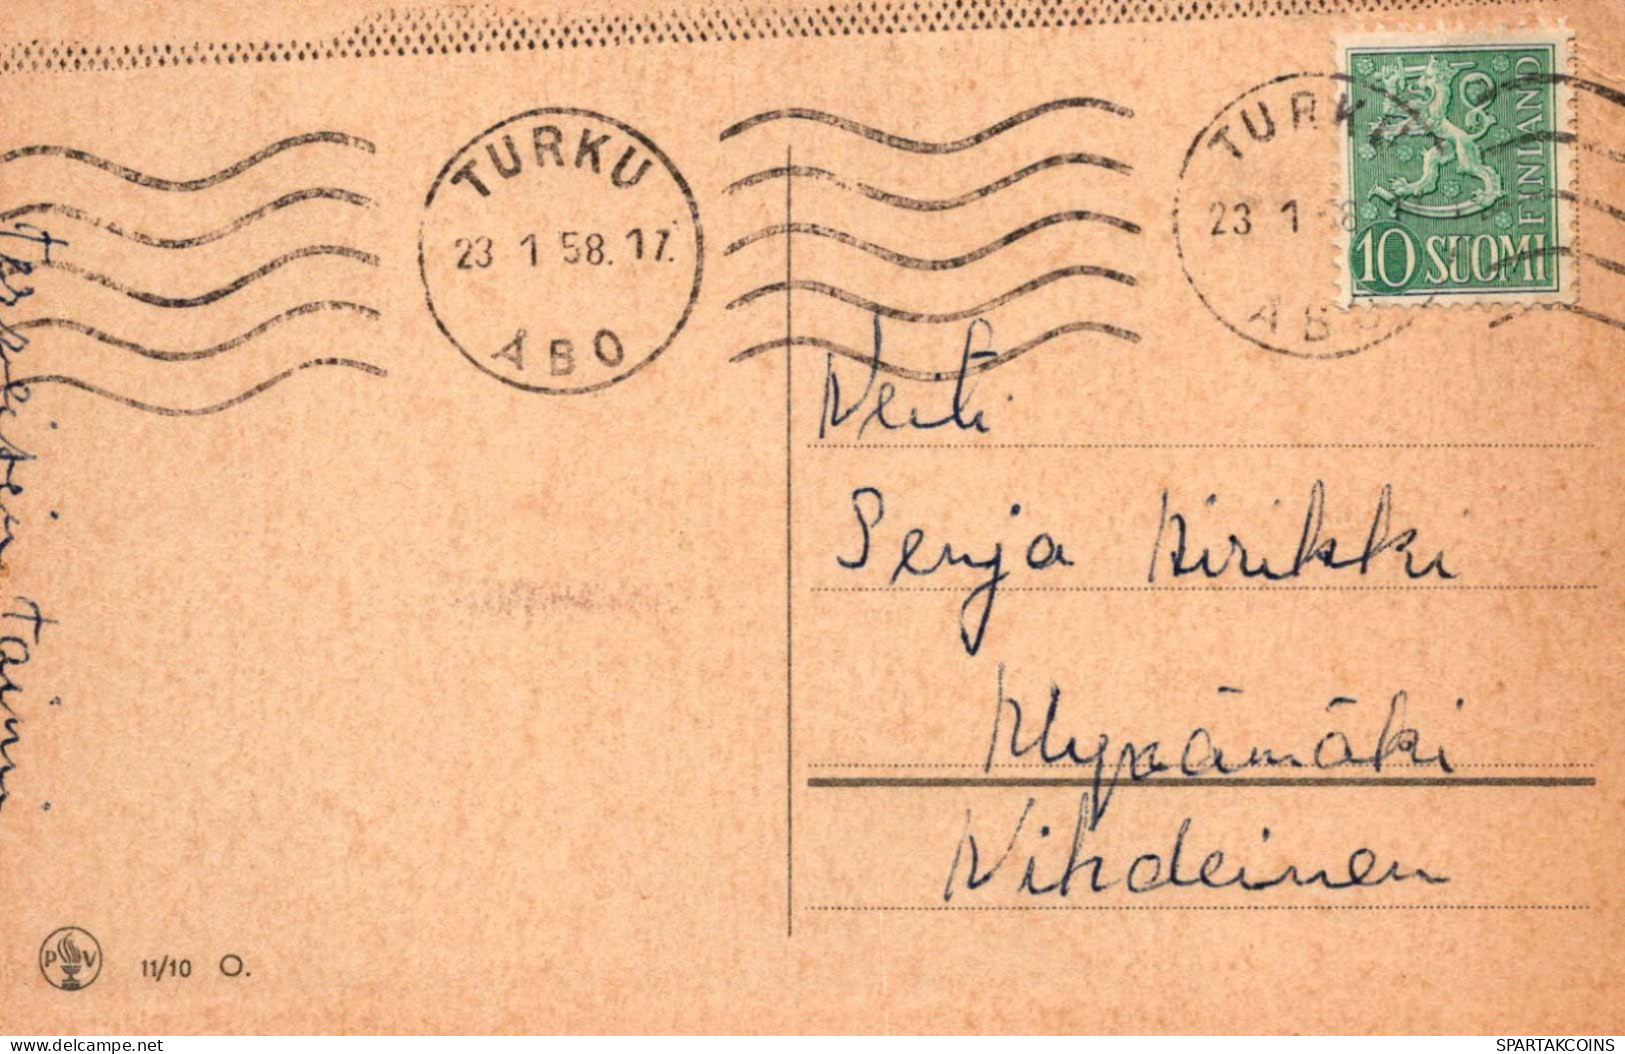 TURKU
23 1 58. 17.
ÅBO
TURKU
23 1 58
ÅBO
10 SUOMI
FINLAND
Neiti
Senja Hirikki
Mynämäki
Nihdeinen
Terveisin Taimi
P V
11/10 O.
delcampe.net
SPARTAKCOINS